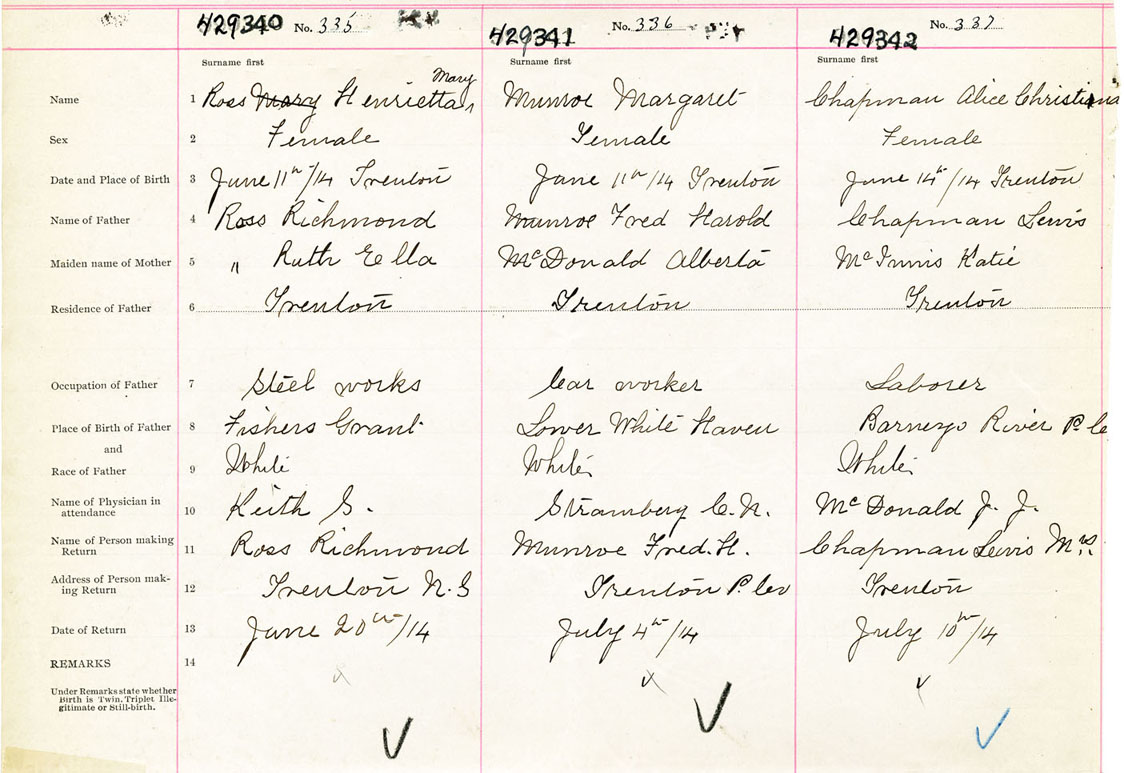 429340 No. 335 429341 No. 336 429342 No. 337
Surname first Surname first Surname first
Mary
Name 1 Ross Mary Henrietta Munroe Margaret Chapman Alice Christiana
Sex 2 Female Female Female
Date and Place of Birth 3 June 11th/14 Trenton June 11th/14 Trenton June 14th/14 Trenton
Name of Father 4 Ross Richmond Munroe Fred Harold Chapman Lewis
Maiden name of Mother 5 " Ruth Ella McDonald Alberta McInnis Katie
Residence of Father 6 Trenton Trenton Trenton
Occupation of Father 7 Steel works Car worker Laborer
Place of Birth of Father 8 Fishers Grant Lower White Haven Barneys River P. Co
and
Race of Father 9 White White White
Name of Physician in
attendance 10 Keith S. Stramberg C. N. McDonald J. J.
Name of Person making
Return 11 Ross Richmond Munroe Fred. H. Chapman Lewis Mrs.
Address of Person mak-
ing Return 12 Trenton N.S Trenton P. Co Trenton
Date of Return 13 June 20th/14 July 4th/14 July 10th/14
REMARKS 14
Under Remarks state whether
Birth is Twin, Triplet Ille-
gitimate or Still-birth.